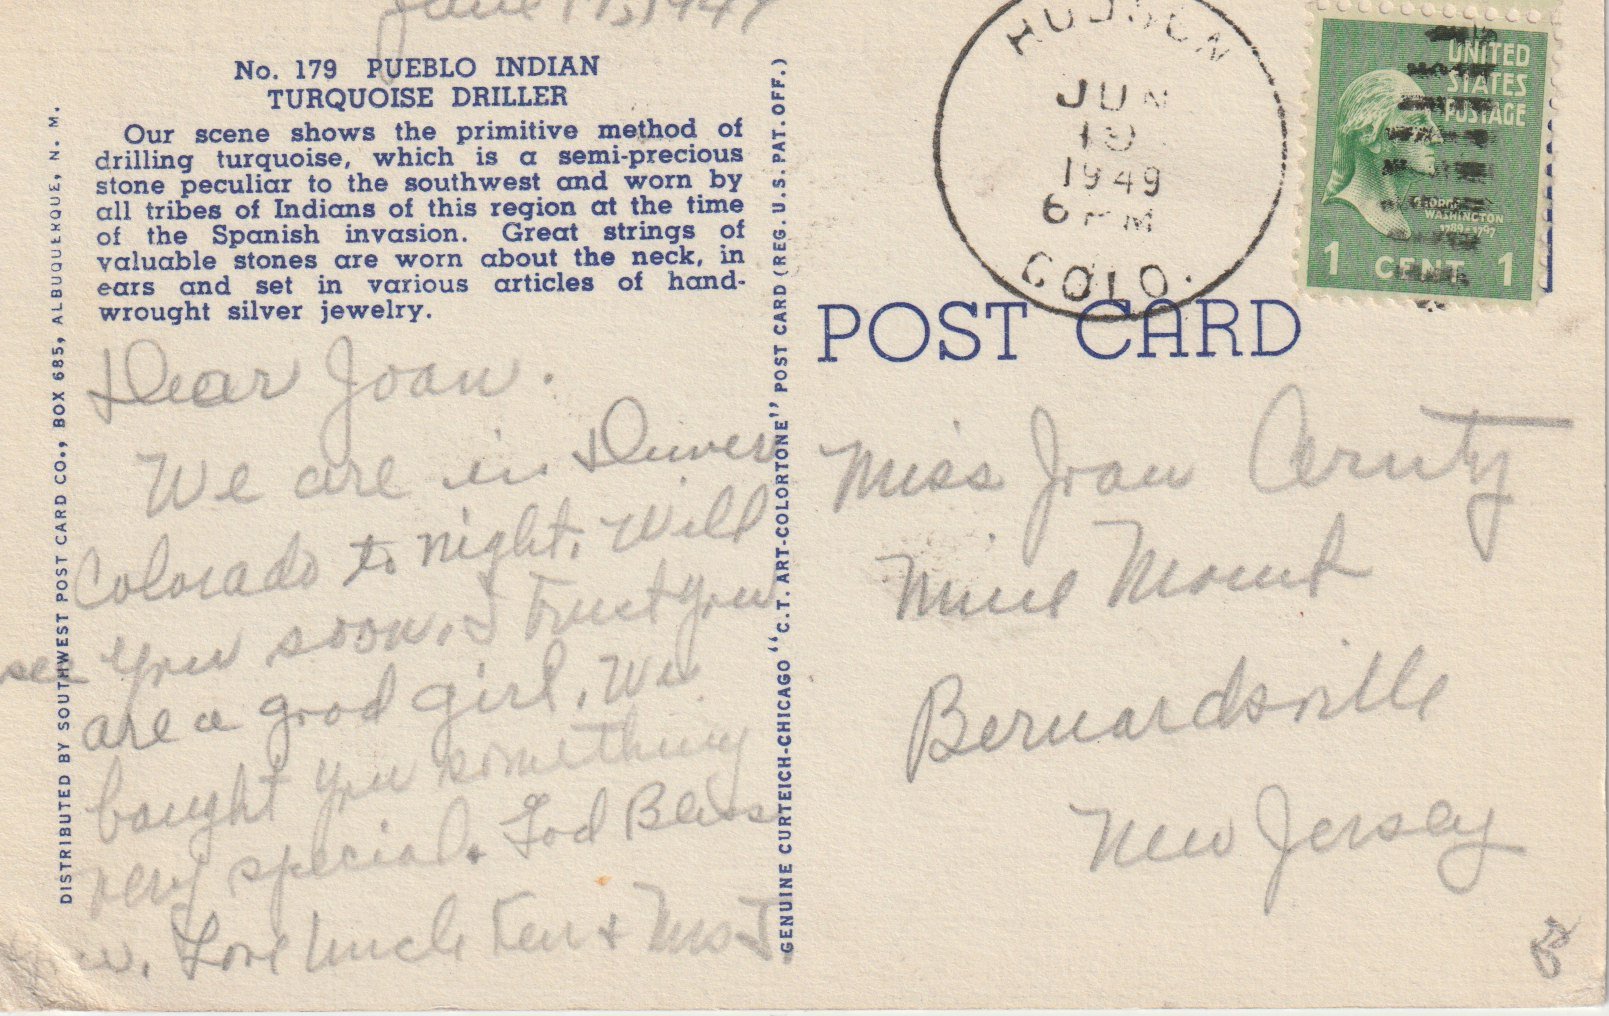 June 19, 1949
No. 179 PUEBLO INDIAN
TURQUOISE DRILLER
Our scene shows the primitive method of
drilling turquoise, which is a semi-precious
stone peculiar to the southwest and worn by
all tribes of Indians of this region at the time
of the Spanish invasion. Great strings of
valuable stones are worn about the neck, in
ears and set in various articles of hand-
wrought silver jewelry.
Dear Joan.
We are in Denver
Colorado to night. Will
see you soon. I trust you
are a good girl. We
bought you something
very special. God Bless
you. Love Uncle Ken +
DISTRIBUTED BY SOUTHWEST POST CARD CO., BOX 685, ALBUQUERQUE, N. M.
GENUINE CURTEICH-CHICAGO "C.T. ART-COLORTONE" POST CARD (REG. U.S. PAT. OFF.)
HUDSON
JUN
19
1949
6 PM
COLO.
UNITED
STATES
POSTAGE
GEORGE
WASHINGTON
1789-1797
1 CENT 1
POST CARD
Miss Joan
Mine Mount
Bernardsville
New Jersey